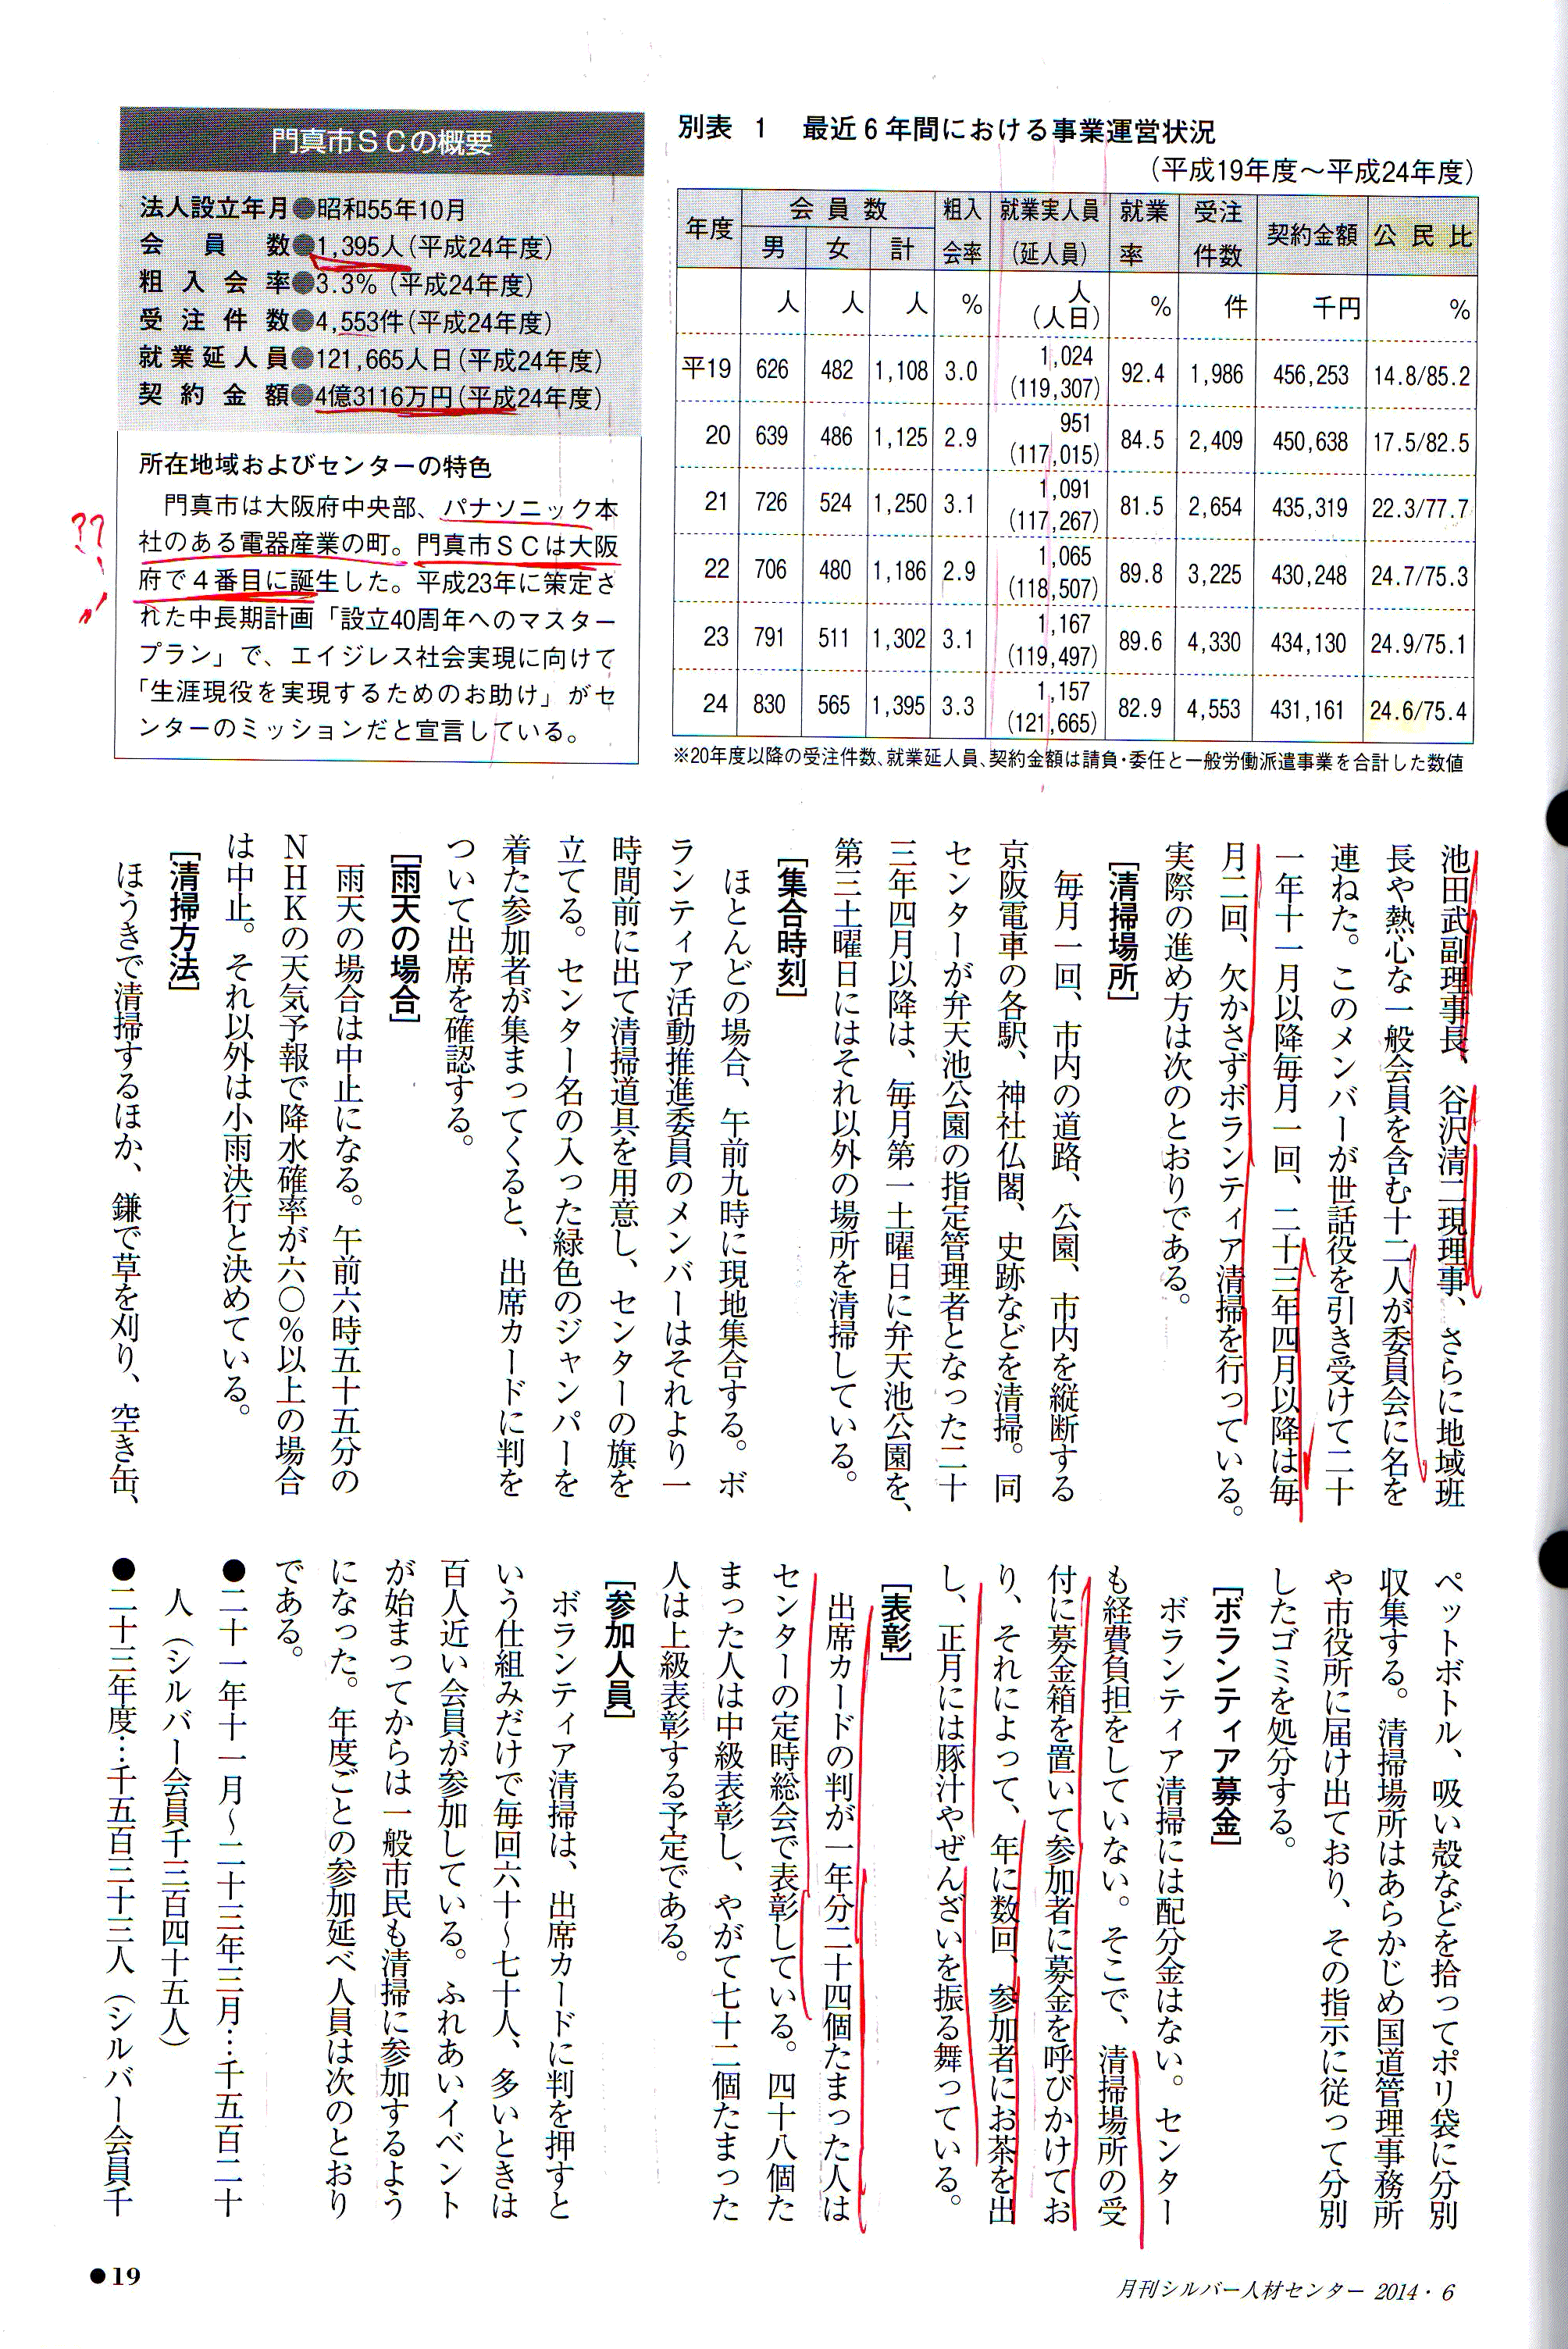 門真市ＳＣの概要
法人設立年月●昭和55年10月
会員数●1,395人(平成24年度)
粗入会率●3.3%(平成24年度)
受注件数●4,553件(平成24年度)
就業延人員●121,665人日(平成24年度)
契約金額●4億3116万円(平成24年度)
所在地域およびセンターの特色
門真市は大阪府中央部、パナソニック本
社のある電器産業の町。門真市ＳＣは大阪
府で４番目に誕生した。平成23年に策定さ
れた中長期計画「設立40周年へのマスター
プラン」で、エイジレス社会実現に向けて
「生涯現役を実現するためのお助け」がセ
ンターのミッションだと宣言している。
??
別表 1 最近６年間における事業運営状況
(平成19年度～平成24年度)
年度 会員数 粗入会率 就業実人員(延人員) 就業率 受注件数 契約金額 公民比
男 女 計
人 人 人 % 人(人日) % 件 千円 %
平19 626 482 1,108 3.0 1,024(119,307) 92.4 1,986 456,253 14.8/85.2
20 639 486 1,125 2.9 951(117,015) 84.5 2,409 450,638 17.5/82.5
21 726 524 1,250 3.1 1,091(117,267) 81.5 2,654 435,319 22.3/77.7
22 706 480 1,186 2.9 1,065(118,507) 89.8 3,225 430,248 24.7/75.3
23 791 511 1,302 3.1 1,167(119,497) 89.6 4,330 434,130 24.9/75.1
24 830 565 1,395 3.3 1,157(121,665) 82.9 4,553 431,161 24.6/75.4
※20年度以降の受注件数、就業延人員、契約金額は請負・委任と一般労働派遣事業を合計した数値
池田武副理事長、谷沢清二現理事、さらに地域班
長や熱心な一般会員を含む十二人が委員会に名を
連ねた。このメンバーが世話役を引き受けて二十
一年十一月以降毎月一回、二十三年四月以降は毎
月二回、欠かさずボランティア清掃を行っている。
実際の進め方は次のとおりである。
［清掃場所］
毎月一回、市内の道路、公園、市内を縦断する
京阪電車の各駅、神社仏閣、史跡などを清掃。同
センターが弁天池公園の指定管理者となった二十
三年四月以降は、毎月第一土曜日に弁天池公園を、
第三土曜日にはそれ以外の場所を清掃している。
［集合時刻］
ほとんどの場合、午前九時に現地集合する。ボ
ランティア活動推進委員のメンバーはそれより一
時間前に出て清掃道具を用意し、センターの旗を
立てる。センター名の入った緑色のジャンパーを
着た参加者が集まってくると、出席カードに判を
ついて出席を確認する。
［雨天の場合］
雨天の場合は中止になる。午前六時五十五分の
ＮＨＫの天気予報で降水確率が六〇％以上の場合
は中止。それ以外は小雨決行と決めている。
［清掃方法］
ほうきで清掃するほか、鎌で草を刈り、空き缶、
ペットボトル、吸い殻などを拾ってポリ袋に分別
収集する。清掃場所はあらかじめ国道管理事務所
や市役所に届け出ており、その指示に従って分別
したゴミを処分する。
［ボランティア募金］
ボランティア清掃には配分金はない。センター
も経費負担をしていない。そこで、清掃場所の受
付に募金箱を置いて参加者に募金を呼びかけてお
り、それによって、年に数回、参加者にお茶を出
し、正月には豚汁やぜんざいを振る舞っている。
［表彰］
出席カードの判が一年分二十四個たまった人は
センターの定時総会で表彰している。四十八個た
まった人は中級表彰し、やがて七十二個たまった
人は上級表彰する予定である。
［参加人員］
ボランティア清掃は、出席カードに判を押すと
いう仕組みだけで毎回六十～七十人、多いときは
百人近い会員が参加している。ふれあいイベント
が始まってからは一般市民も清掃に参加するよう
になった。年度ごとの参加延べ人員は次のとおり
である。
●二十一年十一月～二十三年三月…千五百二十
人（シルバー会員千三百四十五人）
●二十三年度…千五百三十三人（シルバー会員千
●19
月刊シルバー人材センター 2014・6